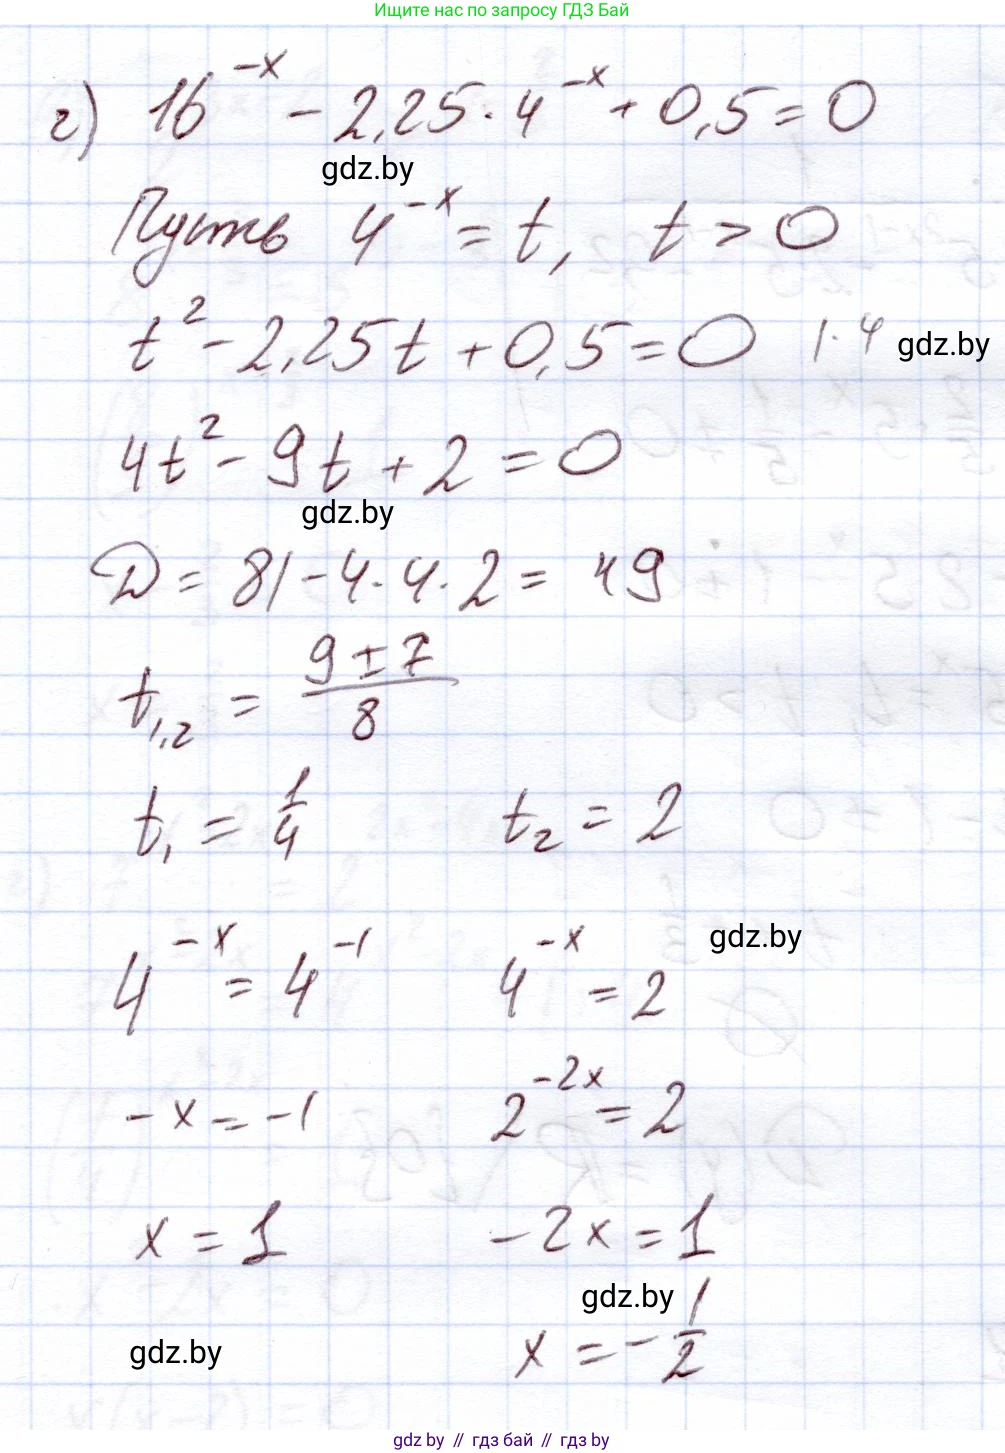 Ищите нас по запросу ГДЗ Бай
г) 16^{-x} - 2,25 · 4^{-x} + 0,5 = 0
gdz.by
Пусть 4^{-x} = t, t > 0
t² - 2,25t + 0,5 = 0 | · 4 gdz.by
4t² - 9t + 2 = 0
gdz.by
D = 81 - 4 · 4 · 2 = 49
t_{1,2} = \frac{9 ± 7}{8}
t₁ = \frac{1}{4} t₂ = 2
gdz.by
4^{-x} = 4^{-1} 4^{-x} = 2
-x = -1 2^{-2x} = 2
x = 1 -2x = 1
gdz.by
gdz.by x = -\frac{1}{2}
gdz.by // гдз бай // гдз by